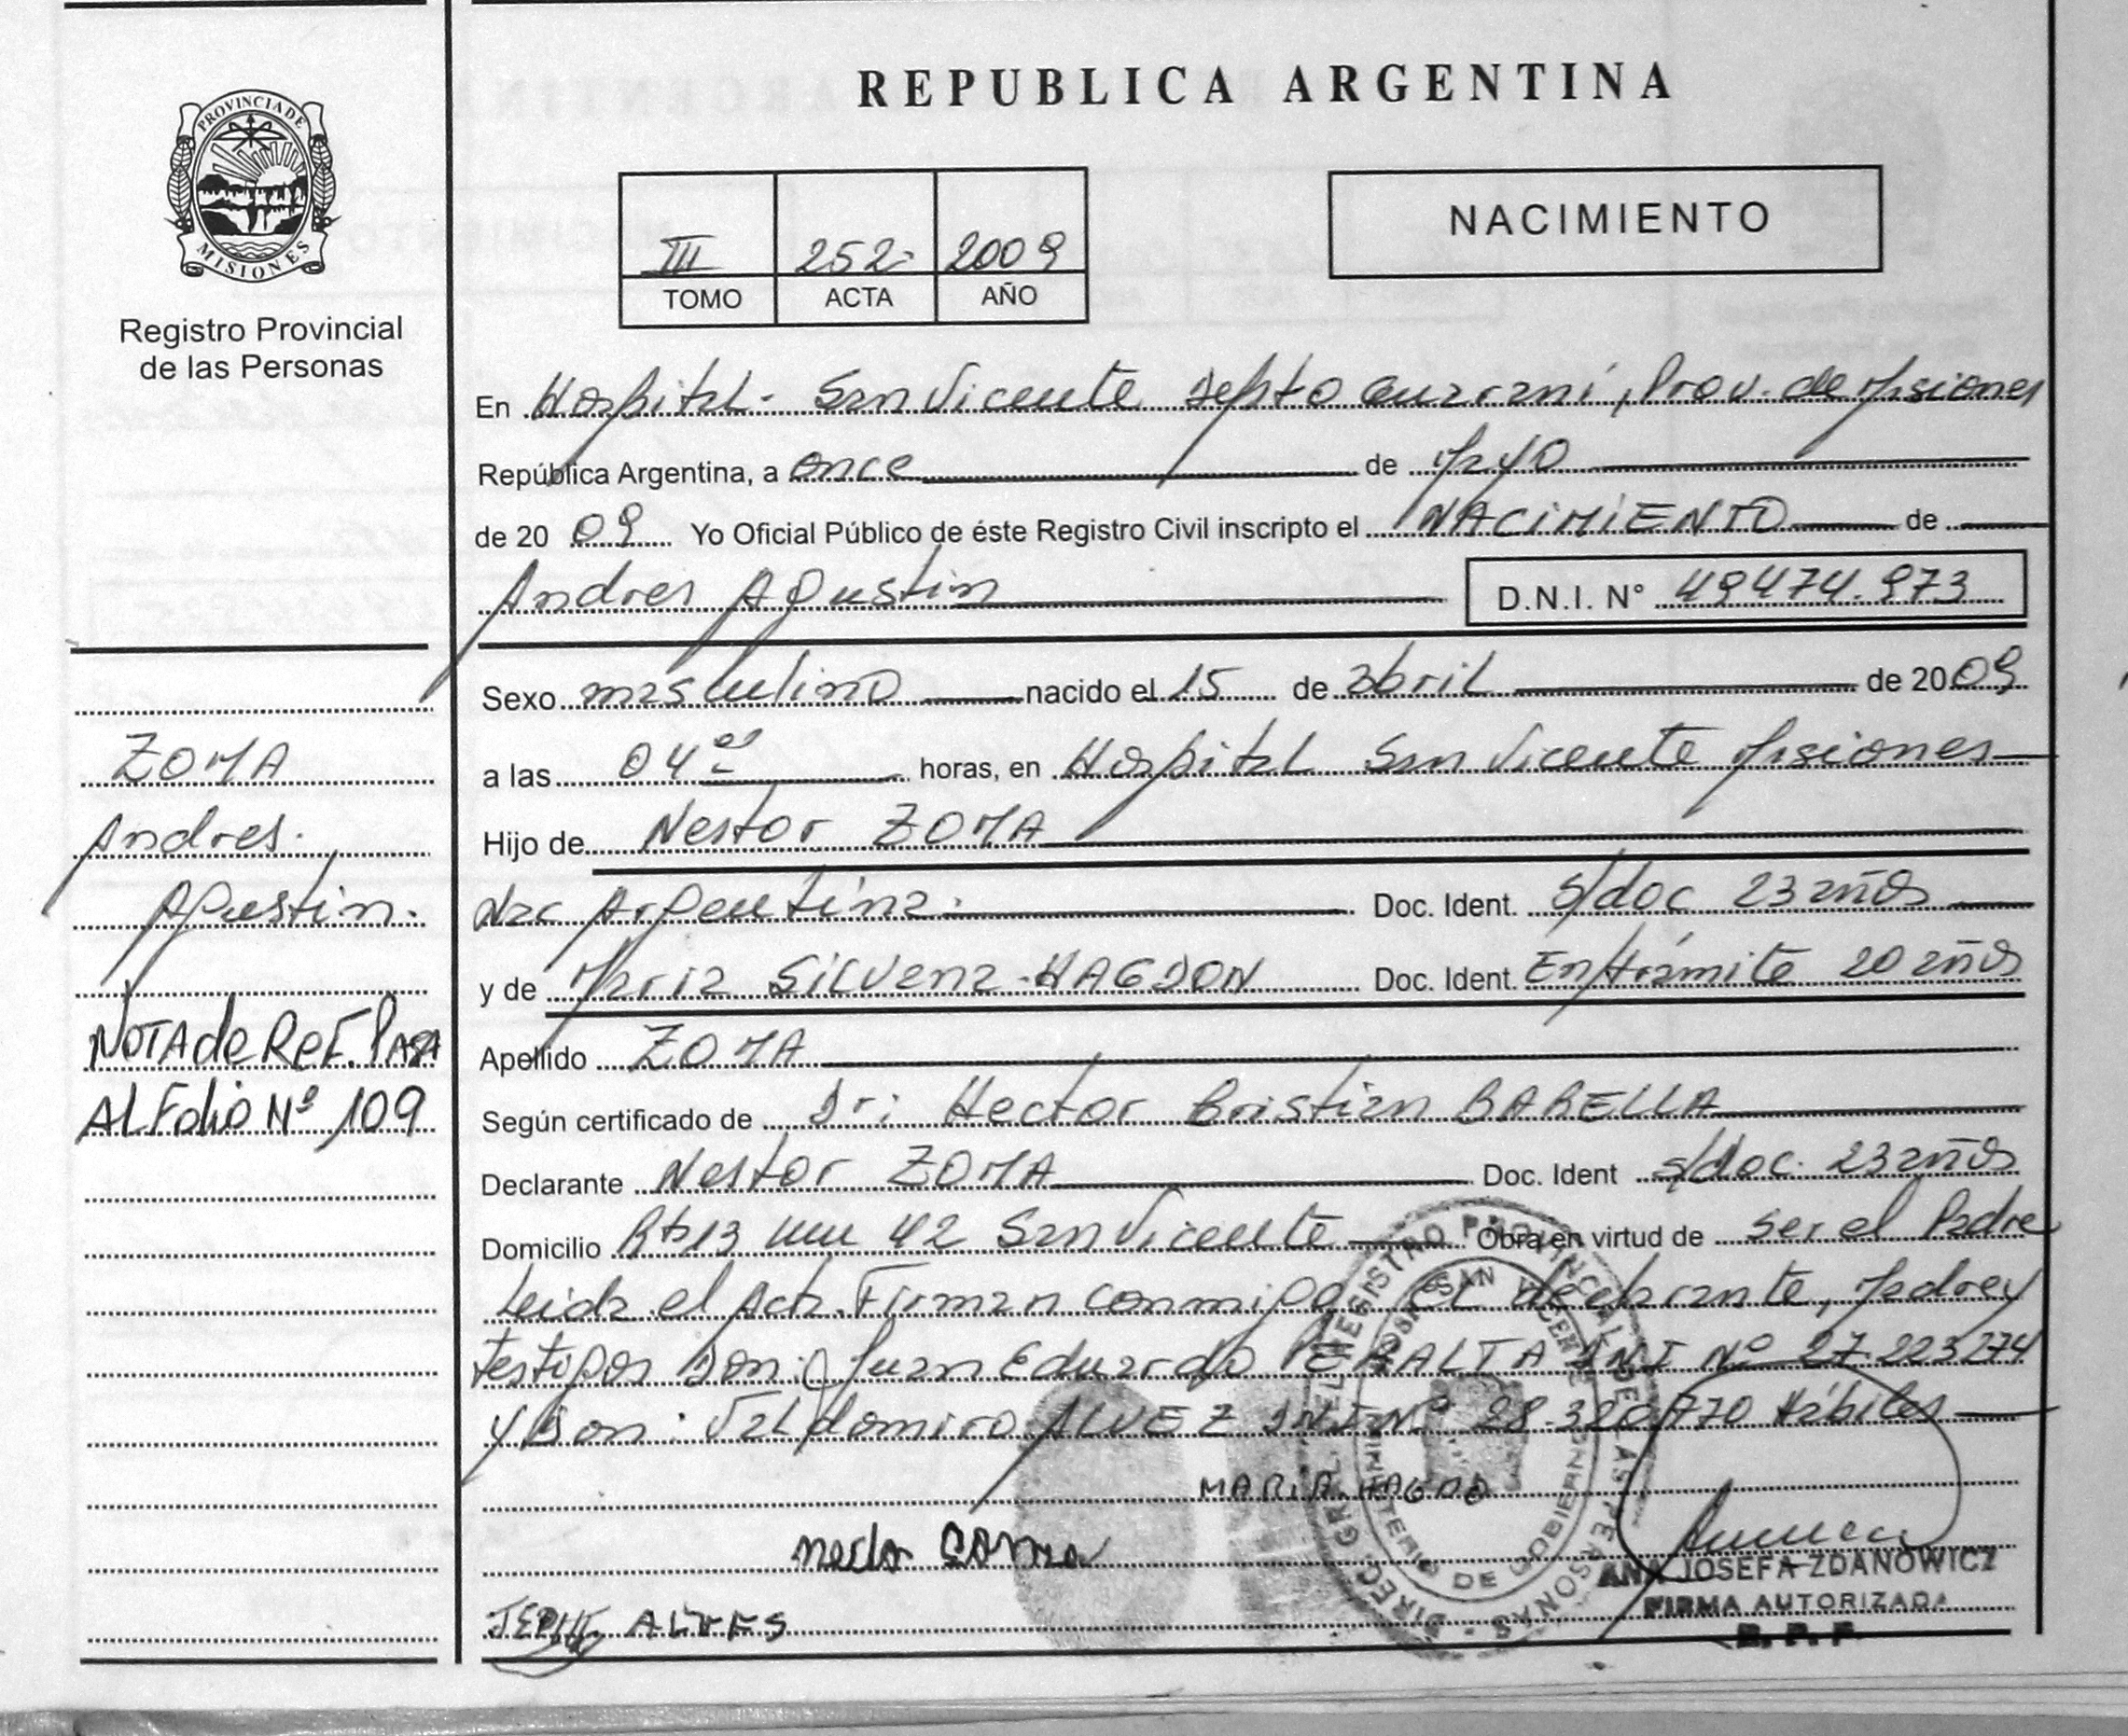 PROVINCIA DE
MISIONES
Registro Provincial
de las Personas
REPUBLICA ARGENTINA
III 252 2009
TOMO ACTA AÑO
NACIMIENTO
En Hospital - San Vicente Depto Guaraní, Prov. de Misiones
República Argentina, a once de Mayo
de 20 09 Yo Oficial Público de éste Registro Civil inscripto el NACIMIENTO de
Andres Agustin D.N.I. N° 49474.973
Sexo masculino nacido el 15 de abril de 2009
a las 04 horas, en Hospital San Vicente Misiones
Hijo de Nestor ZOMA
Nac Argentina. Doc. Ident. s/doc 23 años
y de Maria SILVENA HAGDON Doc. Ident. En trámite 20 años
Apellido ZOMA
Según certificado de Dr: Hector Cristian BARELLA
Declarante Nestor ZOMA Doc. Ident s/doc. 23 años
Domicilio Rta 13 km 42 San Vicente Obra en virtud de ser el Padre
Leida el Acta. Firman conmigo el declarante, Madre y
testigos Don: Juan Eduardo PERALTA DNI Nº 27.223274
y Don: Valdomiro ALVEZ DNI Nº 28.320770 Hábiles
MARIA HAGDO
ALVES
ANA JOSEFA ZDANOWICZ
FIRMA AUTORIZADA
ZOMA
Andres.
Agustin.
NOTA de REF. PASA
AL Folio Nº 109